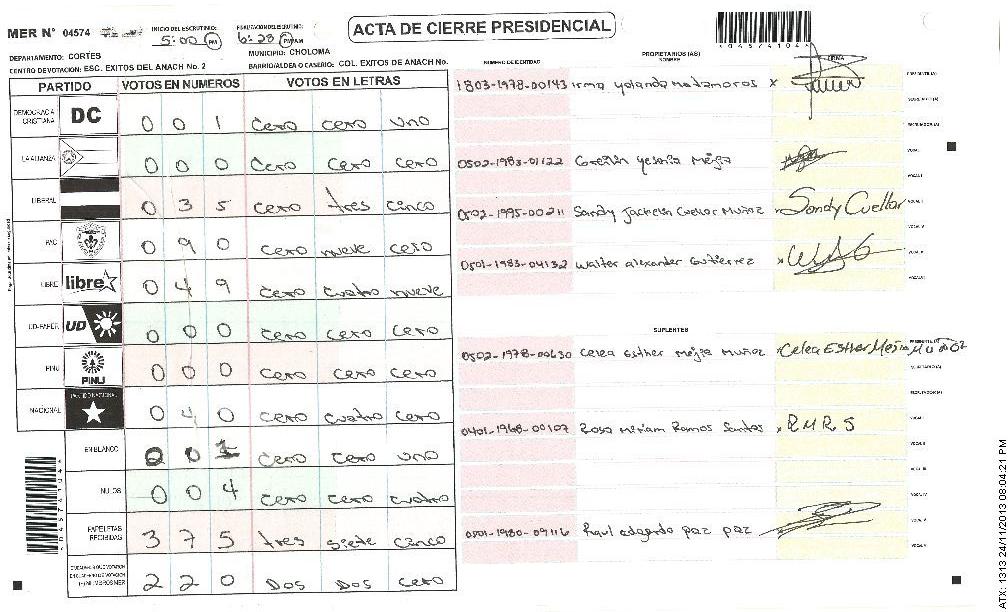 ACTA DE CIERRE PRESIDENCIAL
MER N° 04574
INICIO DEL ESCRUTINIO: 5:00 PM
FINALIZACION DEL ESCRUTINIO: 6:28 PM AM
*04574104*
DEPARTAMENTO: CORTES
MUNICIPIO: CHOLOMA
CENTRO DE VOTACION: ESC. EXITOS DEL ANACH No. 2
BARRIO/ALDEA O CASERIO: COL. EXITOS DE ANACH No.
PARTIDO VOTOS EN NUMEROS VOTOS EN LETRAS
DEMOCRACIA CRISTIANA DC 0 0 1 cero cero uno
LA ALIANZA 0 0 0 cero cero cero
LIBERAL 0 3 5 cero tres cinco
PAC 0 9 0 cero nueve cero
LIBRE libre 0 4 9 cero cuatro nueve
UD-FAPER UD 0 0 0 cero cero cero
PINU PINU 0 0 0 cero cero cero
NACIONAL PARTIDO NACIONAL 0 4 0 cero cuatro cero
EN BLANCO 0 0 1 cero cero uno
NULOS 0 0 4 cero cero cuatro
PAPELETAS RECIBIDAS 3 7 5 tres siete cinco
2 2 0 Dos Dos cero
NUMERO DE IDENTIDAD PROPIETARIOS (AS) NOMBRE FIRMA
1803-1978-00143 Irma yolanda matamoros x
0502-1983-01122 yesenia Mejia
0502-1995-00211 Sandy Jackelin Cuellar Muñoz Sandy Cuellar
0501-1983-04132 Walter alexander Gutierrez x
SUPLENTES
0502-1978-00630 Celea Esther Mejia Muñoz Celea Esther Mejia Muñoz
0401-1968-00107 Rosa Miriam Ramos Santos R.M.R.S
0501-1980-09116 Raul edgardo paz paz
ATX: 1313 24/11/2013 08:04:21 PM